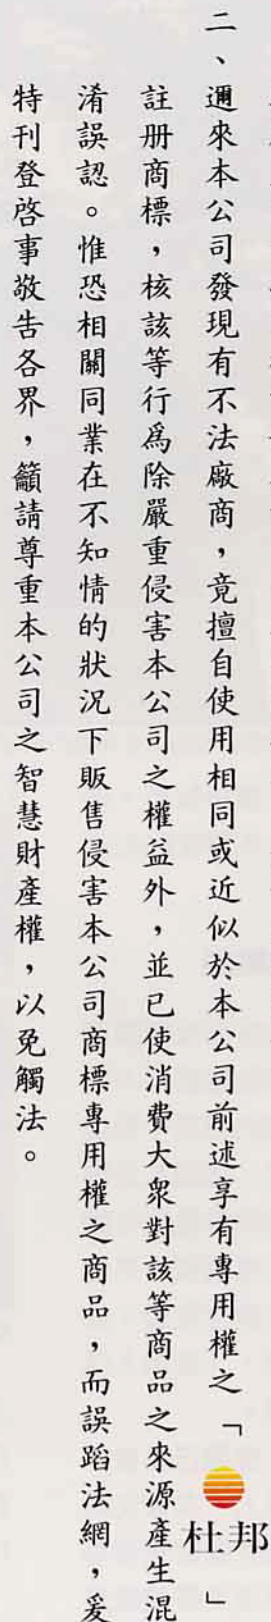 二、邇來本公司發現有不法廠商，竟擅自使用相同或近似於本公司前述享有專用權之「杜邦」
註册商標，核該等行爲除嚴重侵害本公司之權益外，並已使消費大衆對該等商品之來源產生混
淆誤認。惟恐相關同業在不知情的狀況下販售侵害本公司商標專用權之商品，而誤蹈法網，爰
特刊登啓事敬告各界，籲請尊重本公司之智慧財產權，以免觸法。